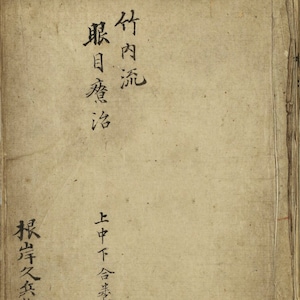 竹内流
眼目療治
上中下合巻
根岸久兵